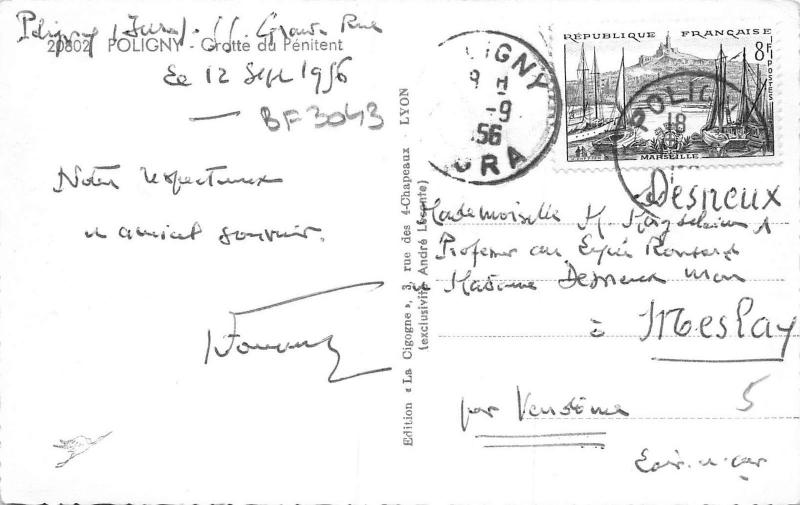 Poligny (Jura). 
Grande Rue
20802 POLIGNY - Grotte du Pénitent
Le 12 Sept 1956
BF3043
Notre respectueux
amical souvenir.
Edition « La Cigogne », 3, rue des 4-Chapeaux - LYON
(exclusivité André Lecante)
LIGNY
9 H
-9
56
URA
RÉPUBLIQUE FRANÇAISE
8F
POSTES
MARSEILLE
POLIGNY
18
Desneux
Mademoiselle M
Professeur au Lycée Ronsard
Madame Desneux
à Meslay
par Vendôme
5
Loir-et-Cher